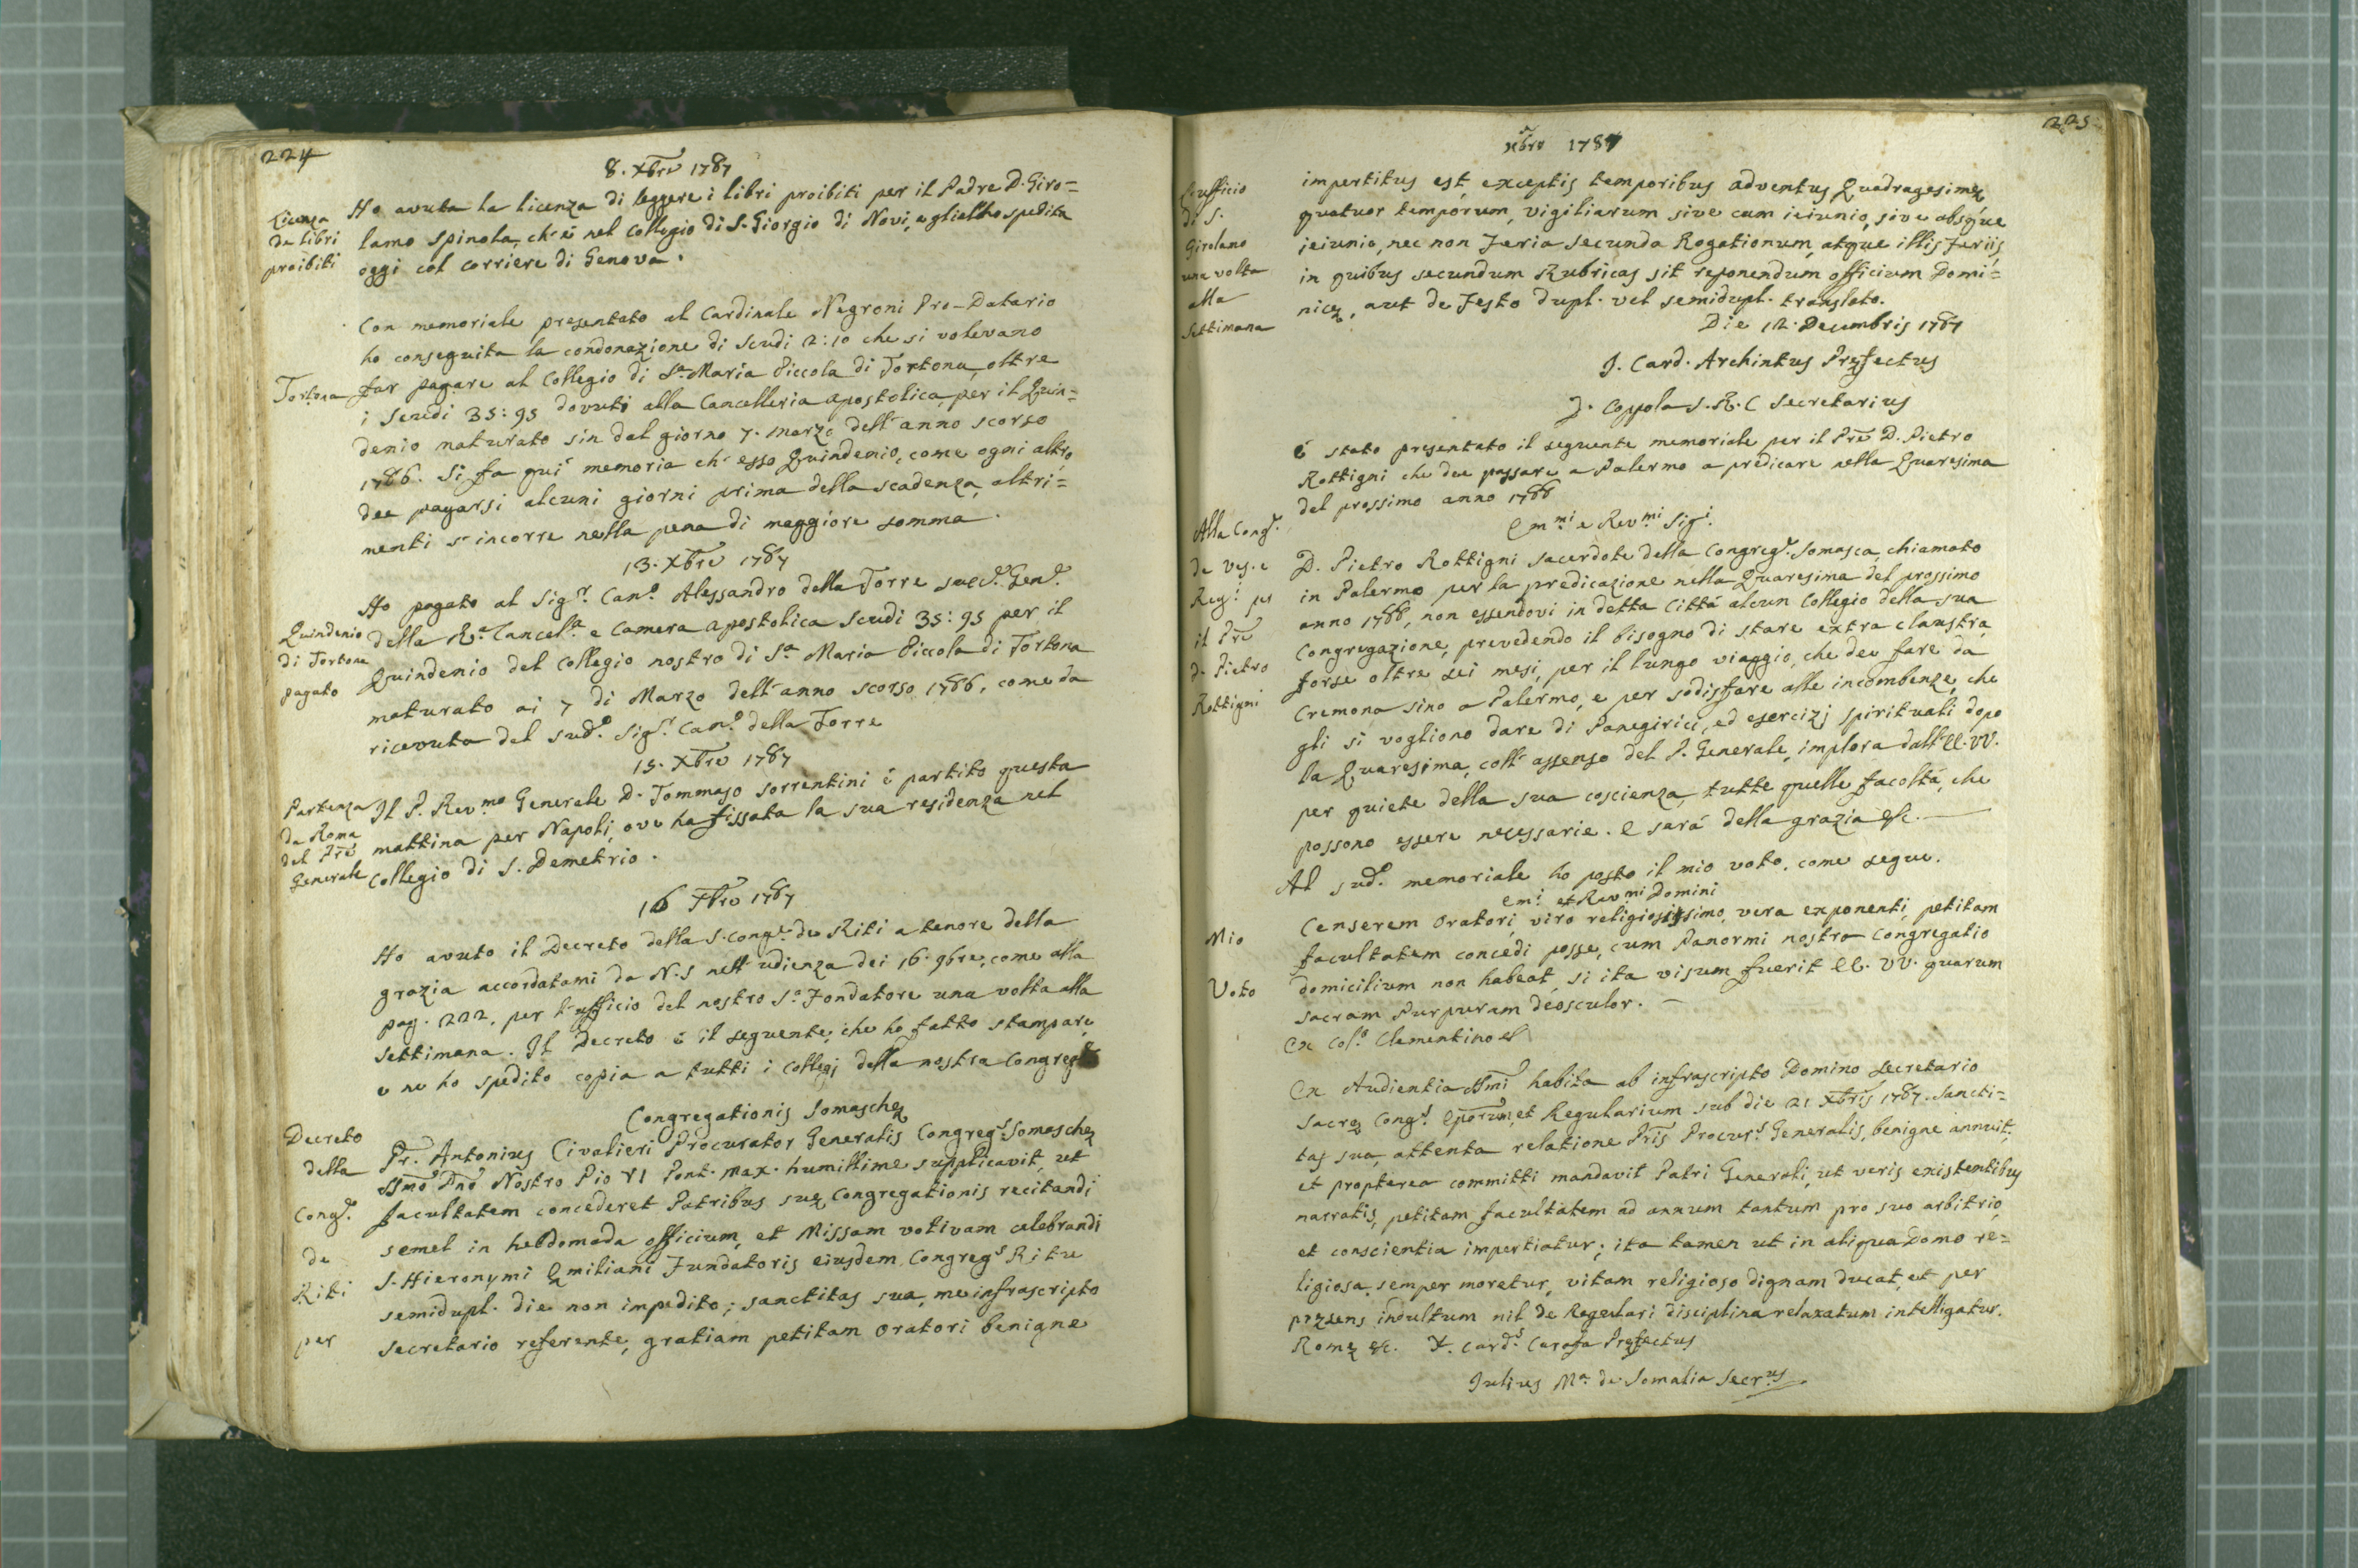 224
8. Xbre 1787
Licenza
de libri
proibiti
Ho avuta la licenza di leggere i libri proibiti per il Padre D. Giro=
lamo Spinola, ch'è nel Collegio di S. Giorgio di Novi, e gliel'ho spedita
oggi col corriere di Genova.
Con memoriale presentato al Cardinale Negroni Pro-Datario
ho conseguita la condonazione di Scudi 2:10 che si volevano
Tortona
far pagare al Collegio di Sa. Maria Piccola di Tortona, oltre
i Scudi 35:95 dovuti alla Cancelleria apostolica per il Quin=
denio maturato sin dal giorno 7. marzo dell'anno scorso
1786. Si fa quì memoria ch'esso Quindenio, come ogni altro
dee pagarsi alcuni giorni prima della scadenza, altri=
menti s'incorre nella pena di maggiore somma.
13. Xbre 1787
Quindenio
di Tortona
pagato
Ho pagato al Sigr. Cano. Alessandro della Torre Genle.
della Ra. Cancela. e Camera apostolica Scudi 35:95 per il
Quindenio del Collegio nostro di Sa. Maria Piccola di Tortona
maturato ai 7 di Marzo dell'anno scorso 1786, come da
ricevuta del sudo. Sigr. Cano. della Torre
15. Xbre 1787
Partenza
da Roma
del Prē
Generale
Il P. Revmo Generale D. Tommaso Sorrentini è partito questa
mattina per Napoli, ove ha fissata la sua residenza nel
Collegio di S. Demetrio.
16 Xbre 1787
Ho avuto il Decreto della S. Conge. de Riti a tenore della
grazia accordatami da N.S nell'udienza dei 16. 9bre, come alla
pag. 222, per l'ufficio del nostro So. Fondatore una volta alla
settimana. Il Decreto è il seguente, che ho fatto stampare
e ne ho spedito copia a tutti i Collegj della nostra Congrege
Congregationis Somaschę
Decreto
della
Conge.
de
Riti
per
Pr. Antonius Civalieri Procurator Generalis Congregs. Somaschę
SSmō Dnō Nostro Pio VI Pont. Max. humillime supplicavit, ut
facultatem concederet Patribus suę Congregationis recitandi
semel in hebdomada officium, et Missam votivam celebrandi
S. Hieronymi Ęmiliani Fundatoris eiusdem Congregs Ritu
semidupl. die non impedito; sanctitas sua, me infrascripto
secretario referente, gratiam petitam Oratori benigne
225
Xbre 1787
L'ufficio
di S.
Girolamo
una volta
alla
Settimana
impertitus est, exceptis temporibus adventus Quadragesimę
quatuor temporum, vigiliarum sive cum ieiunio, sive absque
ieiunio, nec non Feria secunda Rogationum, atque illis Feriis,
in quibus secundum Rubricas sit reponendum officium Domi=
nicę, aut de Festo dupl. vel semidupl. translato.
Die 12. Decembris 1787
J. Card. Archintus Pręfectus
J. Coppola S.R.C Secretarius
è stato presentato il seguente memoriale per il Prē D. Pietro
Rottigni che dee passare a Palermo a predicare nella Quaresima
del prossimo anno 1788
Emmi e Revmi Sigi.
Alla Conge.
de Ves. e
Regi. per
il Prē
D. Pietro
Rottigni
D. Pietro Rottigni sacerdote della Congrege. Somasca, chiamato
in Palermo per la predicazione nella Quaresima del prossimo
anno 1788, non essendovi in detta Città alcun Collegio della sua
Congregazione, prevedendo il bisogno di stare extra claustra
forse oltre sei mesi, per il lungo viaggio, che dee fare da
Cremona sino a Palermo, e per sodisfare alle incombenze, che
gli si vogliono dare di Panegirici, ed esercizj spirituali dopo
la Quaresima, coll'assenso del P. Generale, implora dall'EE. VV.
per quiete della sua coscienza, tutte quelle facoltà, che
possono essere necessarie. E sarà della grazia &c.
Al sudo. memoriale ho posto il mio voto, come segue.
Emi. et Revmi Domini
Mio
Voto
Censerem Oratori, viro religiosissimo, vera exponenti, petitam
facultatem concedi posse, cum Panormi nostra Congregatio
domicilium non habeat, si ita visum fuerit EE. VV. quarum
sacram Purpuram deosculor.
Ex Colo. Clementino &
Ex Audientia SSmi habita ab infrascripto Domino Secretario
Sacrę Congs. Eporum, et Regularium sub die 21 Xbris 1787. Sancti=
tas sua, attenta relatione Pris Procurs. Generalis, benigne annuit,
et propterea committi mandavit Patri Generali, ut veris existentibus
narratis, petitam facultatem ad annum tantum pro suo arbitrio,
et conscientia impertiatur; ita tamen ut in aliqua Domo re=
ligiosa semper moretur, vitam religioso dignam ducat, et per
pręsens indultum nil de Regulari disciplina relaxatum intelligatur.
Romę &c. F. Cards. Carafa Pręfectus
Julius Ma. de Somalia Secrus